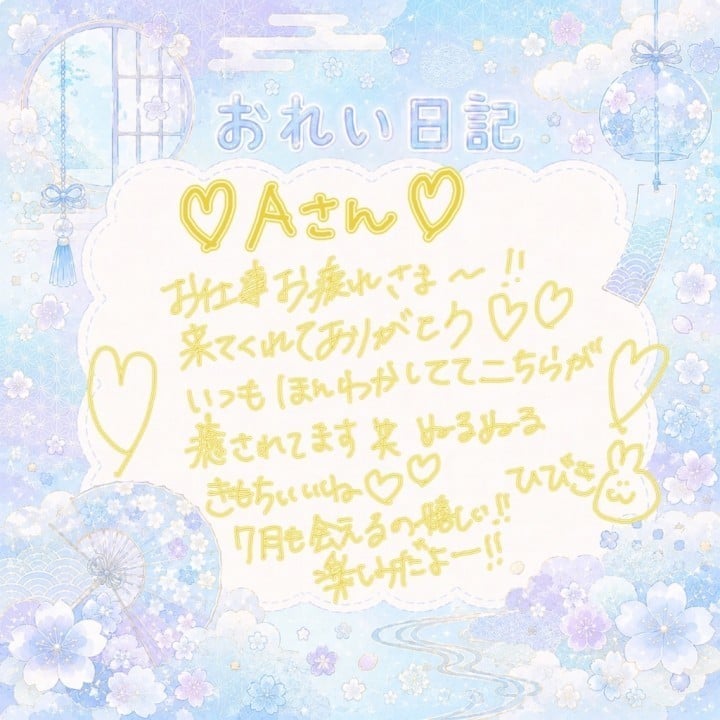 おれい日記
♡Aさん♡
お仕事お疲れさま〜!!
来てくれてありがとう♡♡
いつもほんわかしててこちらが
癒されてます笑 ぬるぬる
きもちいいね♡♡
ひびき
7月も会えるの嬉しい!!
楽しみだよー!!